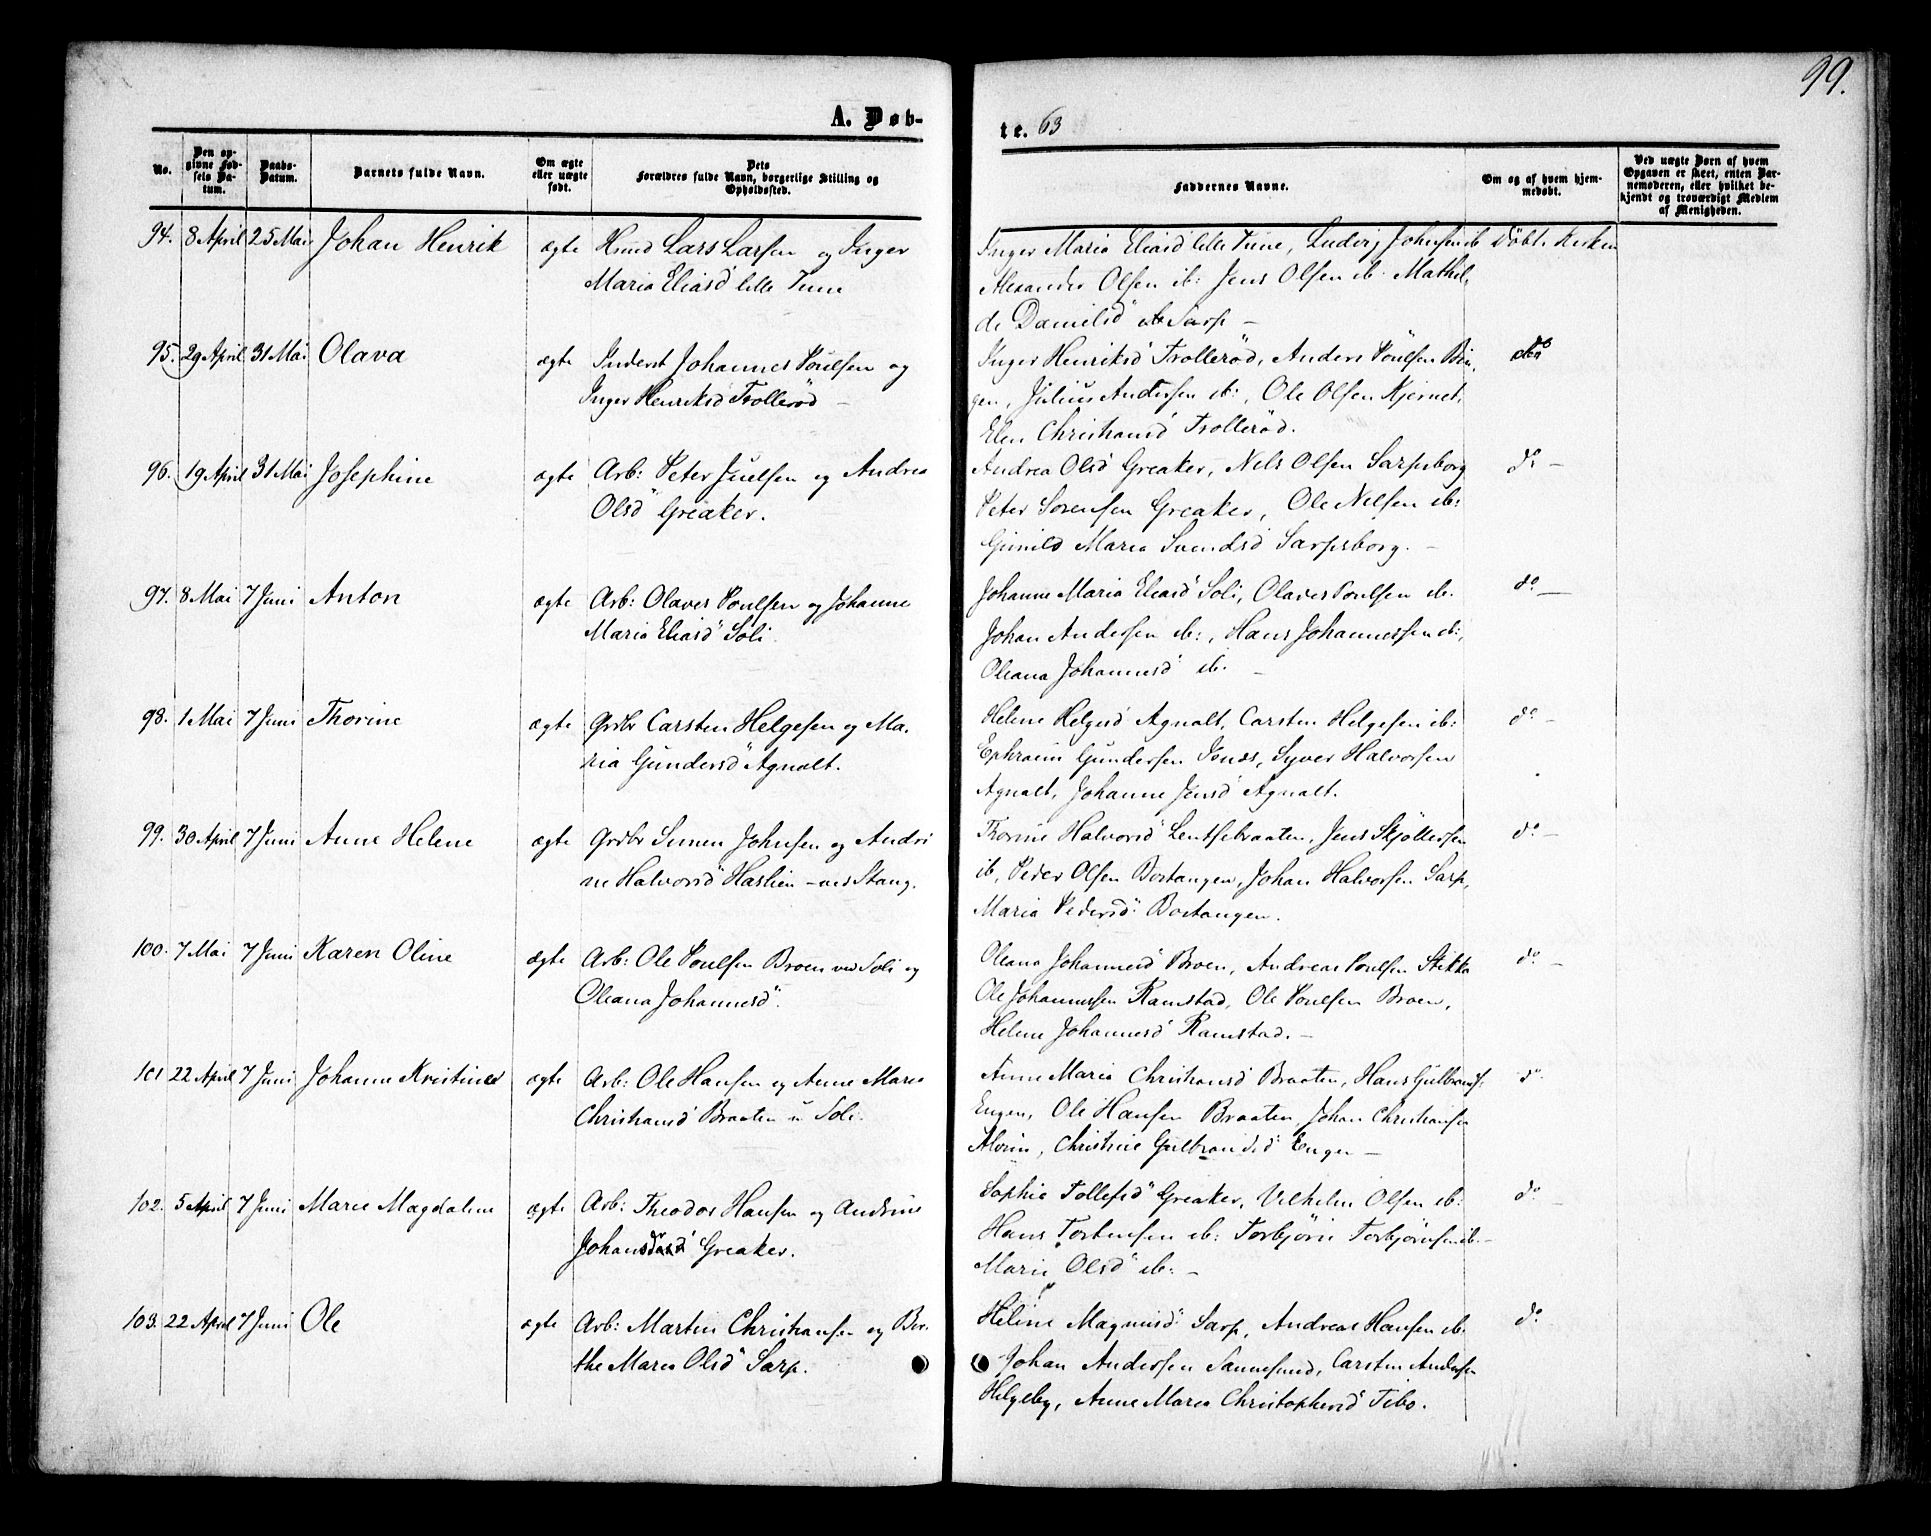 99.
A. Døb-
te. 63
No.
Den opgivne Fødsels Datum.
Daabs-Datum.
Barnets fulde Navn.
Om ægte eller uægte født.
Dets Forældres fulde Navn, borgerlige Stilling og Opholdssted.
Faddernes Navne.
Om og af hvem hjemmedøbt.
Ved uægte Børn af hvem Opgaven er skeet, enten Barnemoderen, eller hvilket bekjendt og troværdigt Medlem af Menigheden.
94. 8 April 25 Mai Johan Henrik ægte Hmd Lars Larsen og Inger
Maria Eliasd lille Tune
Inger Maria Eliasd lille Tune, Ludvig Johnsen ib Døbt i Kirken
Alexander Olsen ib: Jens Olsen ib. Mathil,
de Danielsd Sarp –
95. 29 April 31 Mai Olava ægte Inderst Johannes Poulsen og
Inger Henriksd Trollerød –
Inger Henriksd Trollerød, Anders Poulsen Bin, do
gen, Julius Andersen ib:, Ole Olsen Kjernet,
Elen Christiansd Trollerød.
96. 19 April 31 Mai Josephine ægte Arb: Peter Juelsen og Andrea
Olsd Greaker.
Andrea Olsd Greaker, Nels Olsen Sarpsborg do –
Peter Sørensen Greaker, Ole Nelsen ib:
Gunild Maria Svendsd Sarpsborg. –
97. 8 Mai 7 Juni Anton ægte Arb: Olaves Poulsen og Johanne
Maria Eliasd Soli.
Johanne Maria Eliasd Soli, Olaves Poulsen ib. do –
Johan Andersen ib:, Hans Johannessen ib:,
Oleana Johannesd ib. –
98. 1 Mai 7 Juni Thorine ægte Grdbr Carsten Helgesen og Ma,
ria Gundersd Agnalt.
Helene Helgesd Agnalt, Carsten Helgesen ib: do –
Ephraim Gundersen Isnæs, Syver Halvorsen
Agnalt, Johanne Jensd Agnalt.
99. 30 April 7 Juni Anne Helene ægte Grdbr Simen Johnsen og Andri
ne Halvorsd Haslien – ved Stang.
Thorine Halvorsd Lentsebraaten, Jens Skjøllersen do –
ib, Peder Olsen Bostangen, Johan Halvorsen Sarp,
Maria Pedersd Bostangen.
100. 7 Mai 7 Juni Karen Oline ægte Arb: Ole Poulsen Broen ved Soli og
Oleana Johannesd.
Oleana Johannesd Broen, Andreas Poulsen Stikka do –
Ole Johannessen Ramstad, Ole Poulsen Broen,
Helene Johannesd Ramstad. –
101 22 April 7 Juni Johanne Kristine ægte Arb: Ole Hansen og Anne Maria
Christiansd Braaten u Soli.
Anne Maria Christiansd Braaten, Hans Gulbrands: do
Engen, Ole Hansen Braaten, Johan Christiansen
Alvim, Christine Gulbrandsd Engen –
102. 5 April 7 Juni Maren Magdalene ægte Arb: Theodor Hansen og Andrine
Johansd Greaker.
Sophie Tollefsd Greaker, Vilhelm Olsen ib: do –
Hans Torstensen ib: Torbjørn Torbjørnsen ib. –
Marie Olsd ib: –
103. 22 April 7 Juni Ole ægte Arb: Martin Christiansen og Ber,
the Maria Olsd Sarp.
Heline Magnusd Sarp, Andreas Hansen ib. do
Johan Andersen Sannesund, Carsten Andersen
Helgeby, Anne Maria Christophersd Tebo.